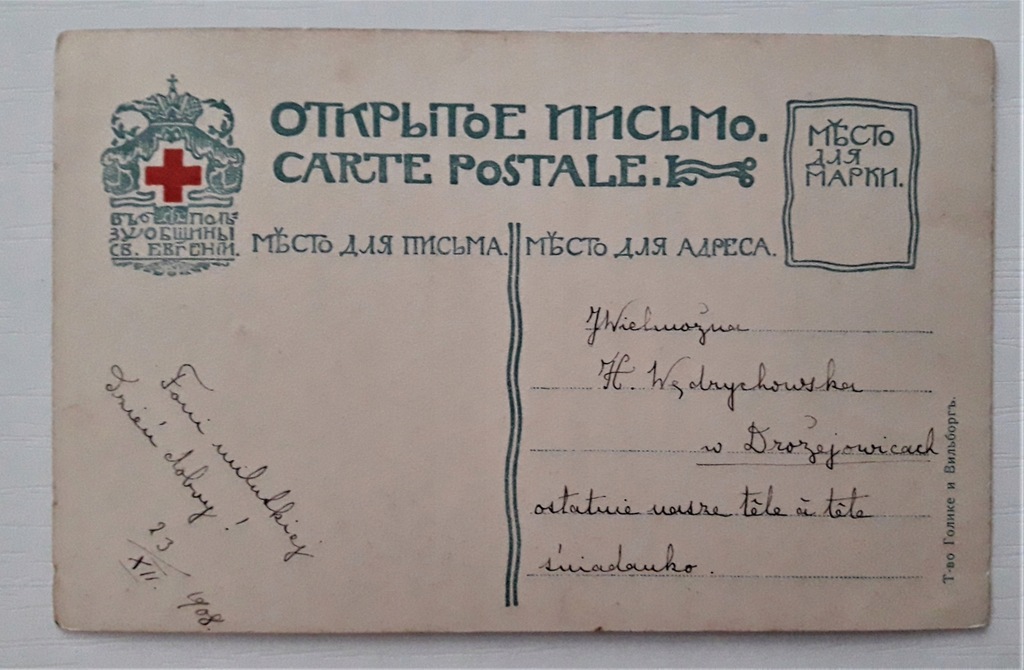 ОТКРЫТОЕ ПИСЬМО.
CARTE POSTALE.
МѢСТО
ДЛЯ
МАРКИ.
ВЪ ПОЛЬ-
ЗУ ОБЩИНЫ
СВ. ЕВГЕНІИ.
МѢСТО ДЛЯ ПИСЬМА.
МѢСТО ДЛЯ АДРЕСА.
Toni milutkiej
Dzień dobry!
23/XII. 1908.
JWielmożna
H. Wędrychowska
w Drożejowicach
ostatnie nasze tête à tête
śniadanko.
Т-во Голике и Вильборгъ.